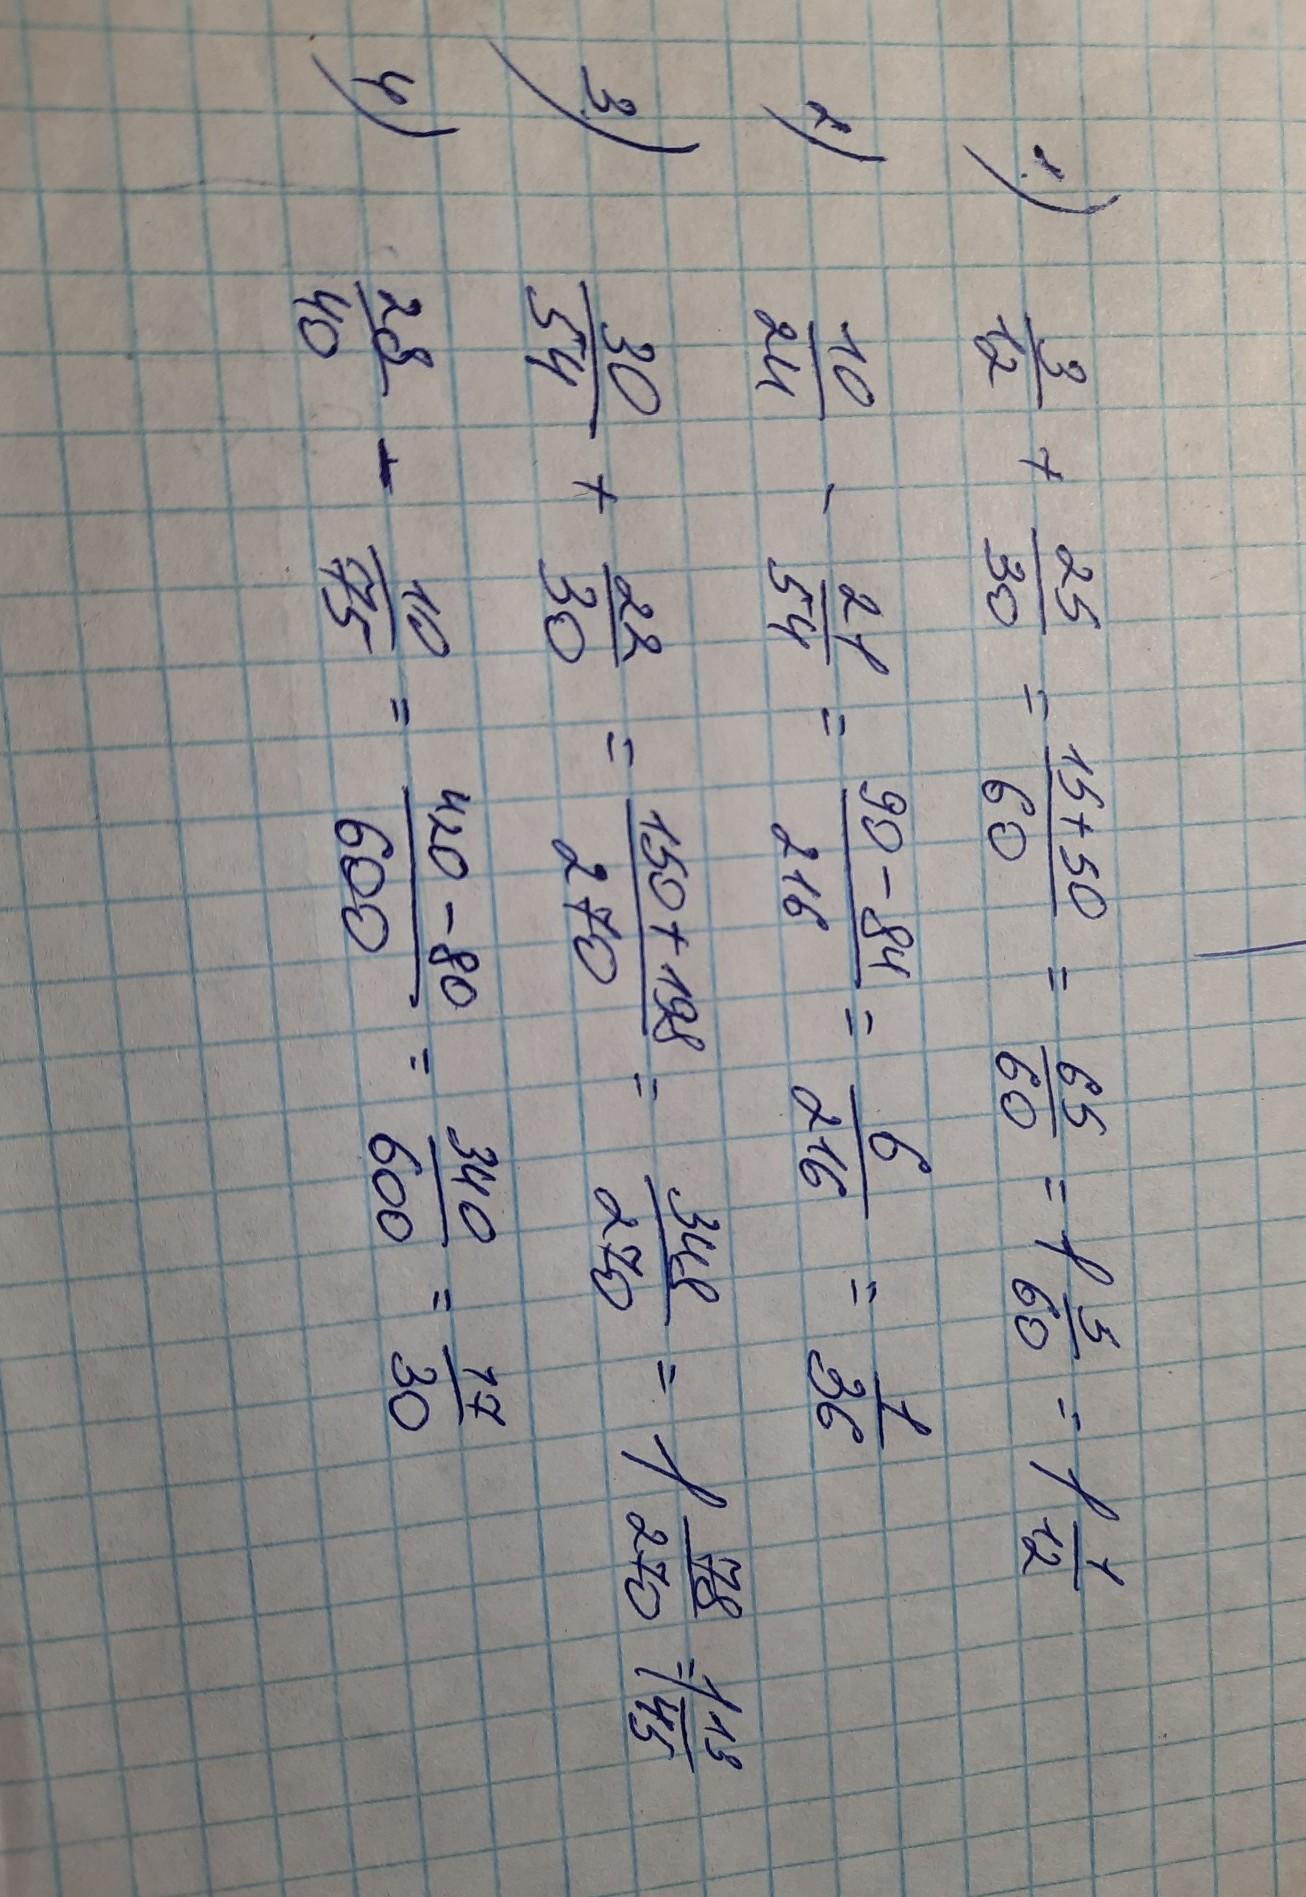 1) 3/12 + 25/30 = 15+50/60 = 65/60 = 1 5/60 = 1 1/12
2) 10/24 - 21/54 = 90-84/216 = 6/216 = 1/36
3) 30/54 + 22/30 = 150+198/270 = 348/270 = 1 78/270 = 1 13/45
4) 28/40 - 10/75 = 420-80/600 = 340/600 = 17/30